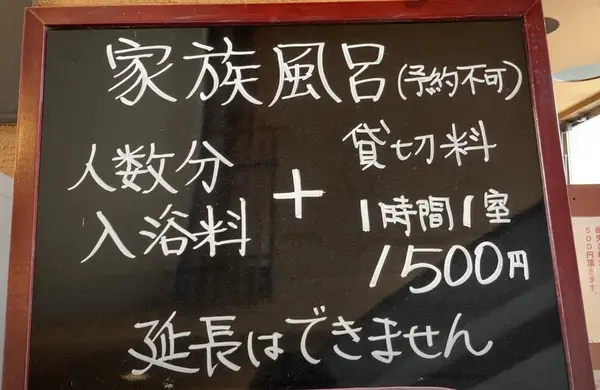 家族風呂(予約不可)
人数分
入浴料
+
貸切料
1時間1室
1500円
延長はできません
500円頂きます。